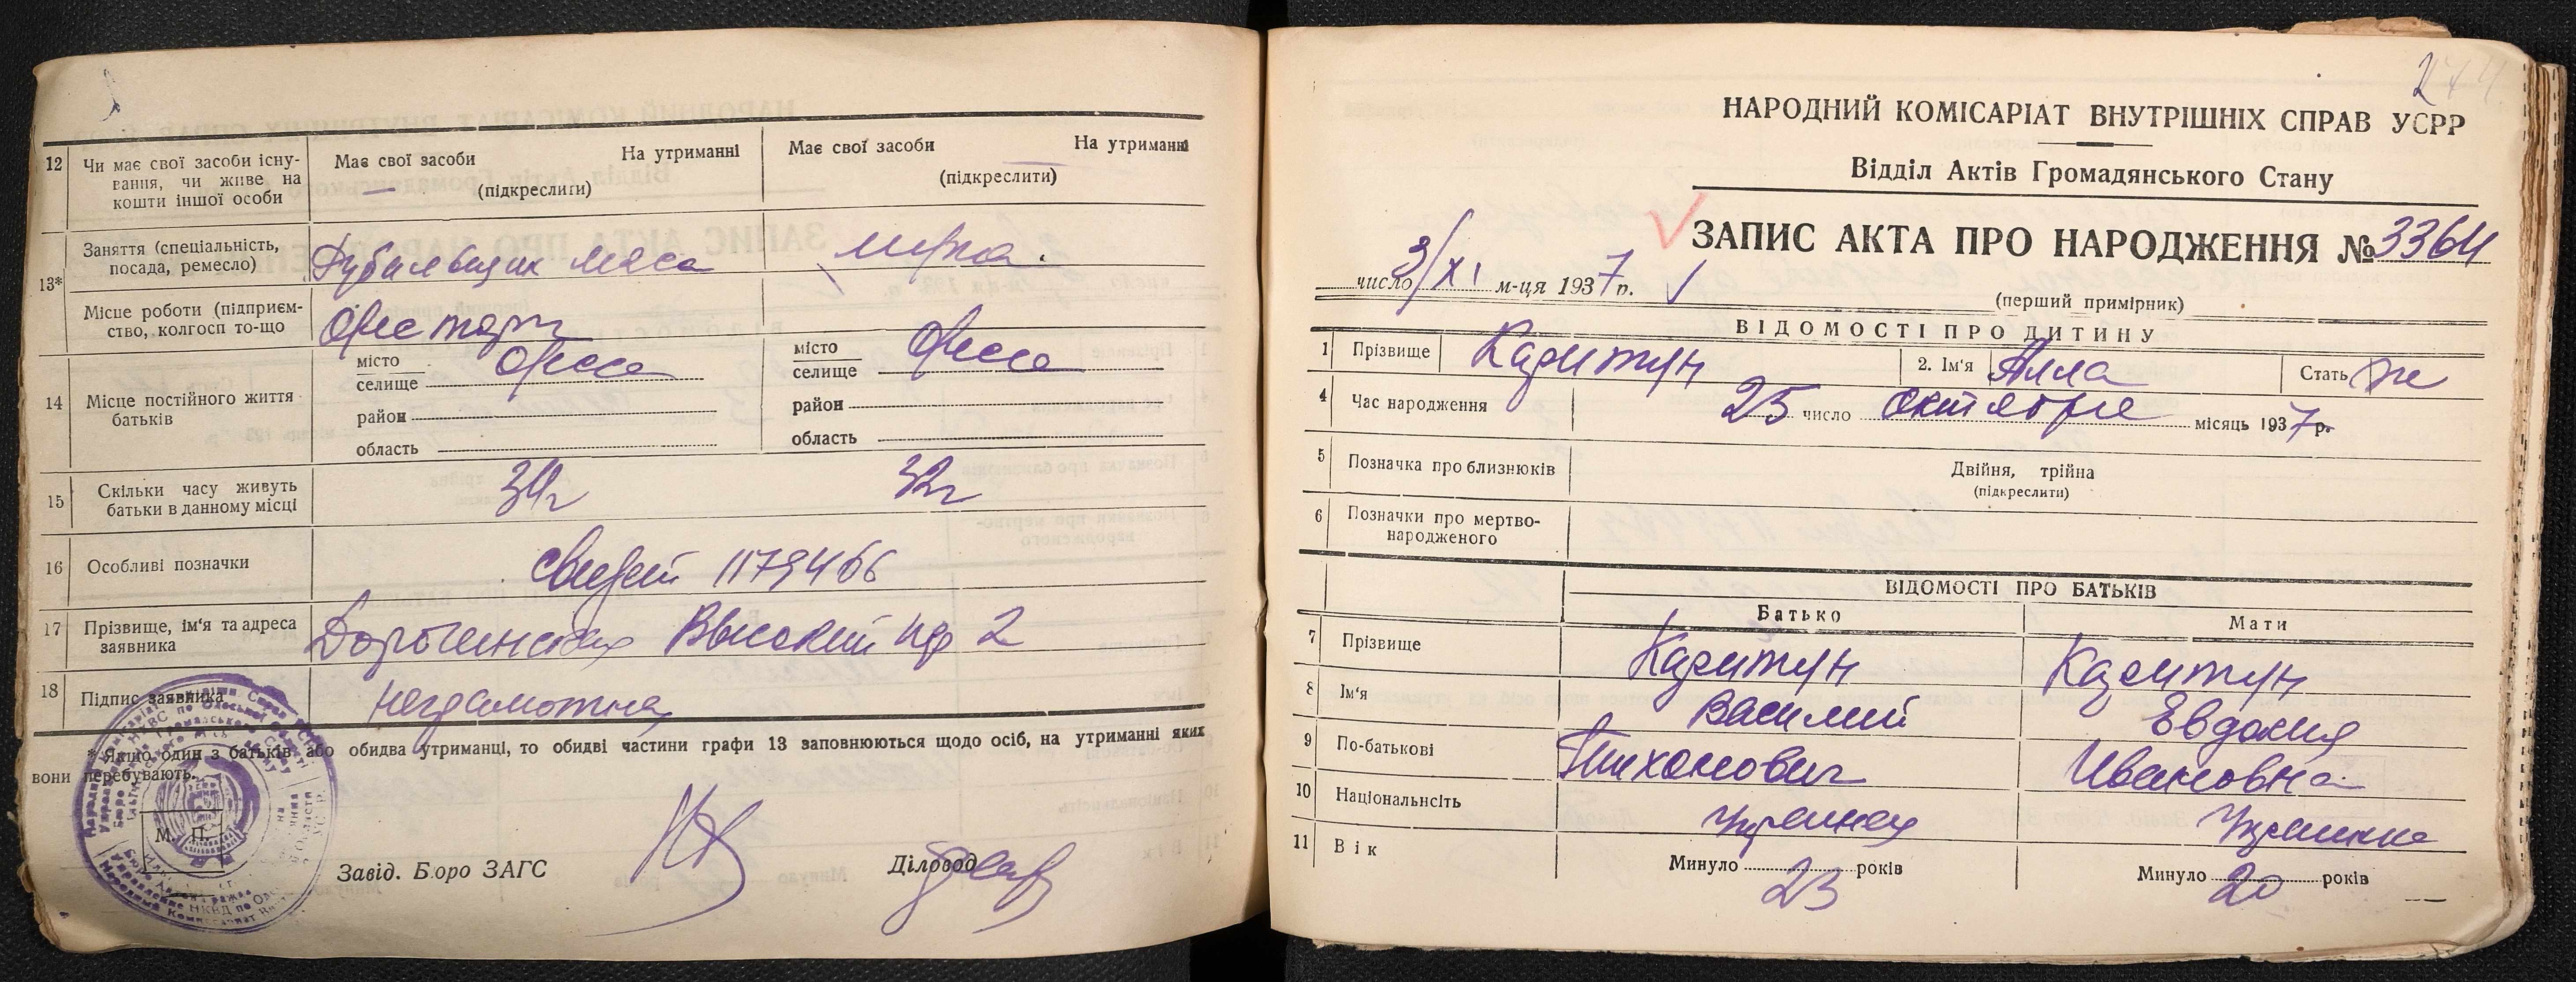 12
Чи має свої засоби існу-
вання, чи живе на
кошти іншої особи
Має свої засоби На утриманні
(підкреслити)
Має свої засоби На утриманні
(підкреслити)
13*
Заняття (спеціальність,
посада, ремесло)
Рубильщик мяса
Місце роботи (підприєм-
ство, колгосп то-що
14
Місце постійного життя
батьків
місто
селище
Одесса
район
область
місто
селище
Одесса
район
область
15
Скільки часу живуть
батьки в данному місці
3г
16
Особливі позначки
свидет 1179466
17
Прізвище, ім'я та адреса
заявника
2
18
Підпис заявника
неграмотная
* Якщо один з батьків або обидва утриманці, то обидві частини графи 13 заповнюються щодо осіб, на утриманні яких
вони перебувають.
М. П.
Завід. Бюро ЗАГС
Діловод
НАРОДНИЙ КОМІСАРІАТ ВНУТРІШНІХ СПРАВ УСРР
Відділ Актів Громадянського Стану
ЗАПИС АКТА ПРО НАРОДЖЕННЯ № 3364
число 3/XI м-ця 1937 р.
(перший примірник)
ВІДОМОСТІ ПРО ДИТИНУ
1 Прізвище
2. Ім'я Алла
Стать ж
4 Час народження
25 число октября місяць 1937 р.
5 Позначка про близнюків
Двійня, трійна
(підкреслити)
6 Позначки про мертво-
народженого
ВІДОМОСТІ ПРО БАТЬКІВ
Батько
Мати
7 Прізвище
8 Ім'я
Василий
Евдокия
9 По-батькові
Тихонович
Ивановна
10 Національнсіть
Украинец
Украинка
11 Вік
Минуло 23 років
Минуло 20 років